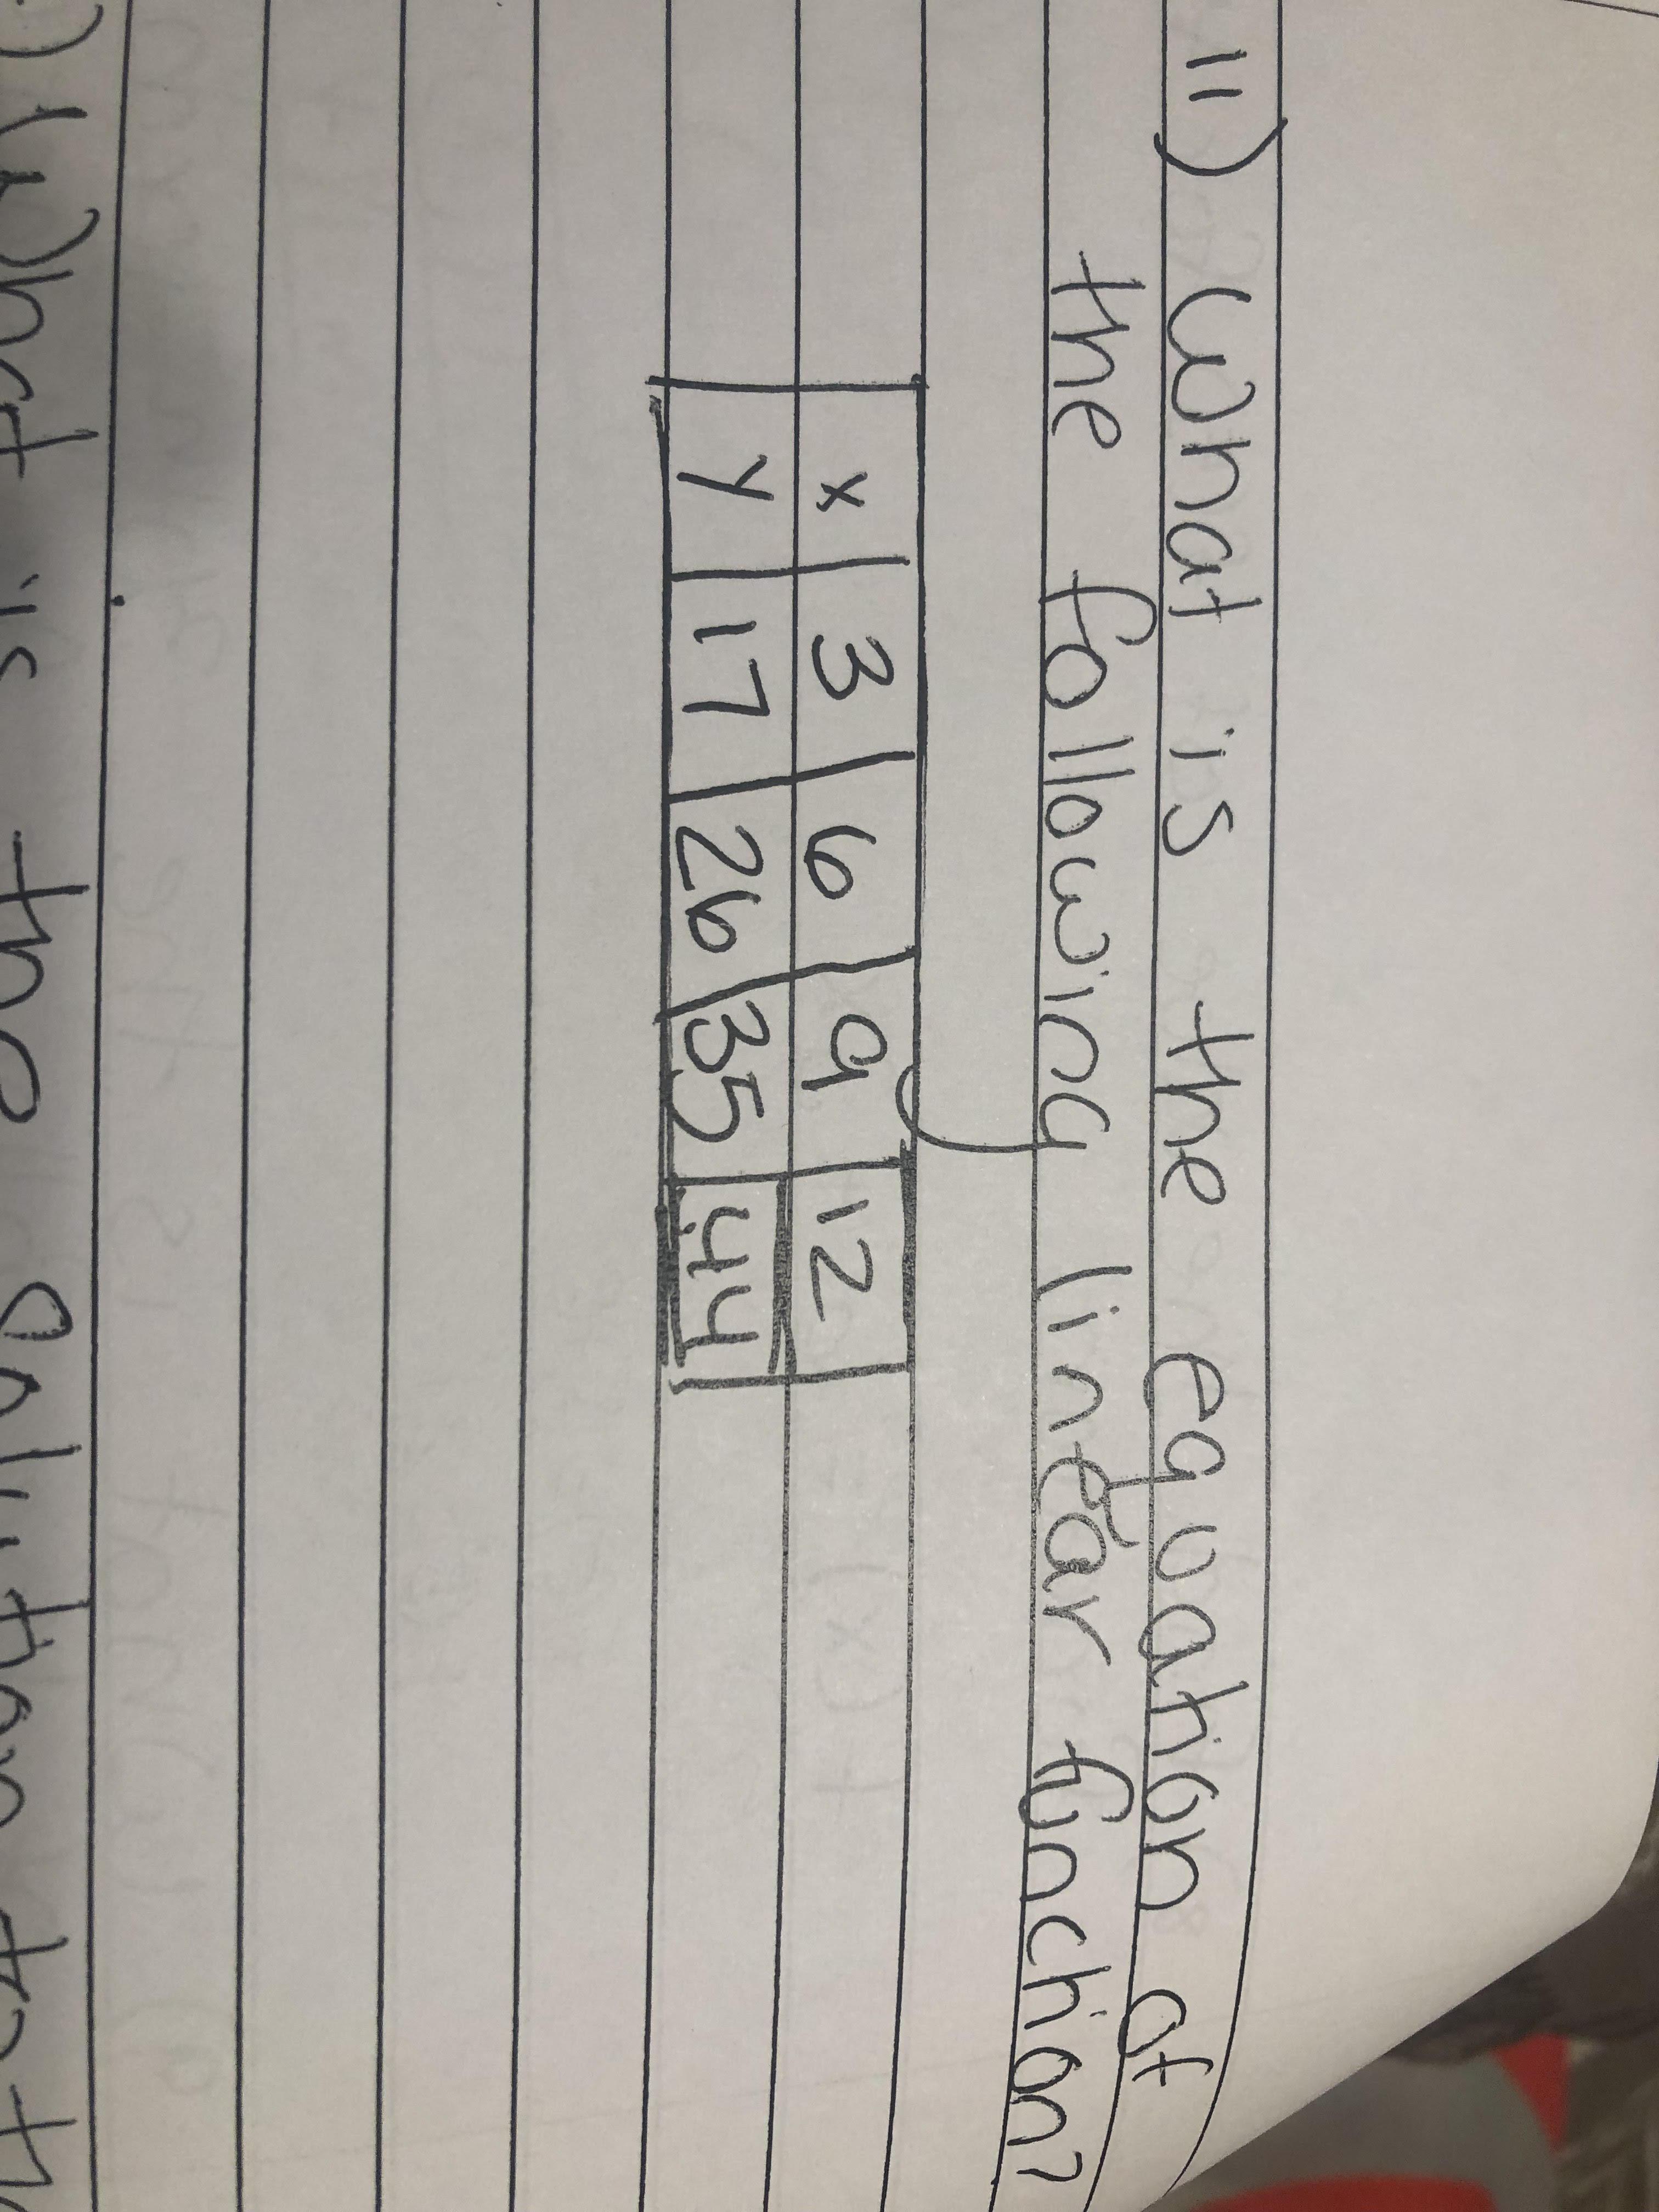 11) What is the equation of
the following linear function?
x 3 6 9 12
y 17 26 35 44
What is the